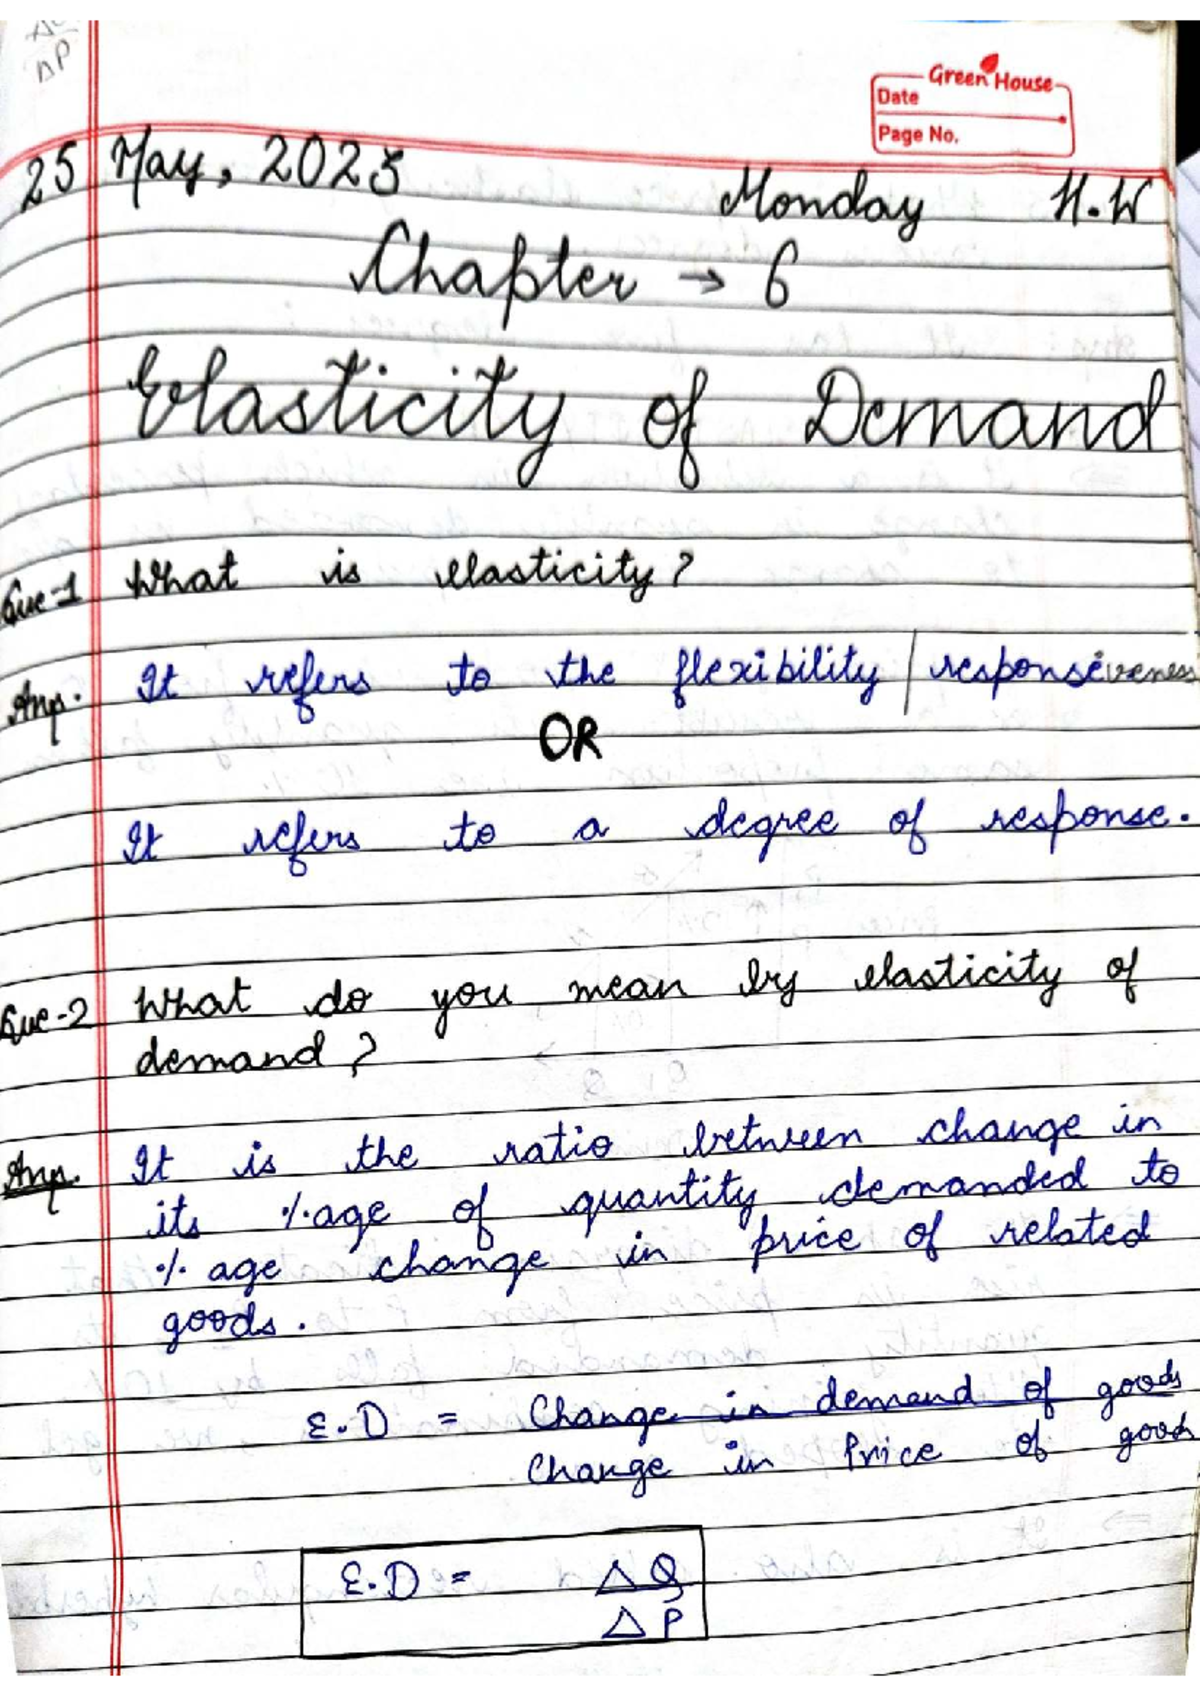 ΔP
Green House
Date
Page No.
25 May, 2023 Monday H.W
Chapter → 6
Elasticity of Demand
Que-1 What is elasticity?
Ans. It refers to the flexibility / responsiveness
OR
It refers to a degree of response.
Que-2 What do you mean by elasticity of
demand?
Ans. It is the ratio between change in
its %age of quantity demanded to
% age change in price of related
goods.
E.D = Change in demand of goods
Change in Price of goods
E.D = ΔQ
ΔP